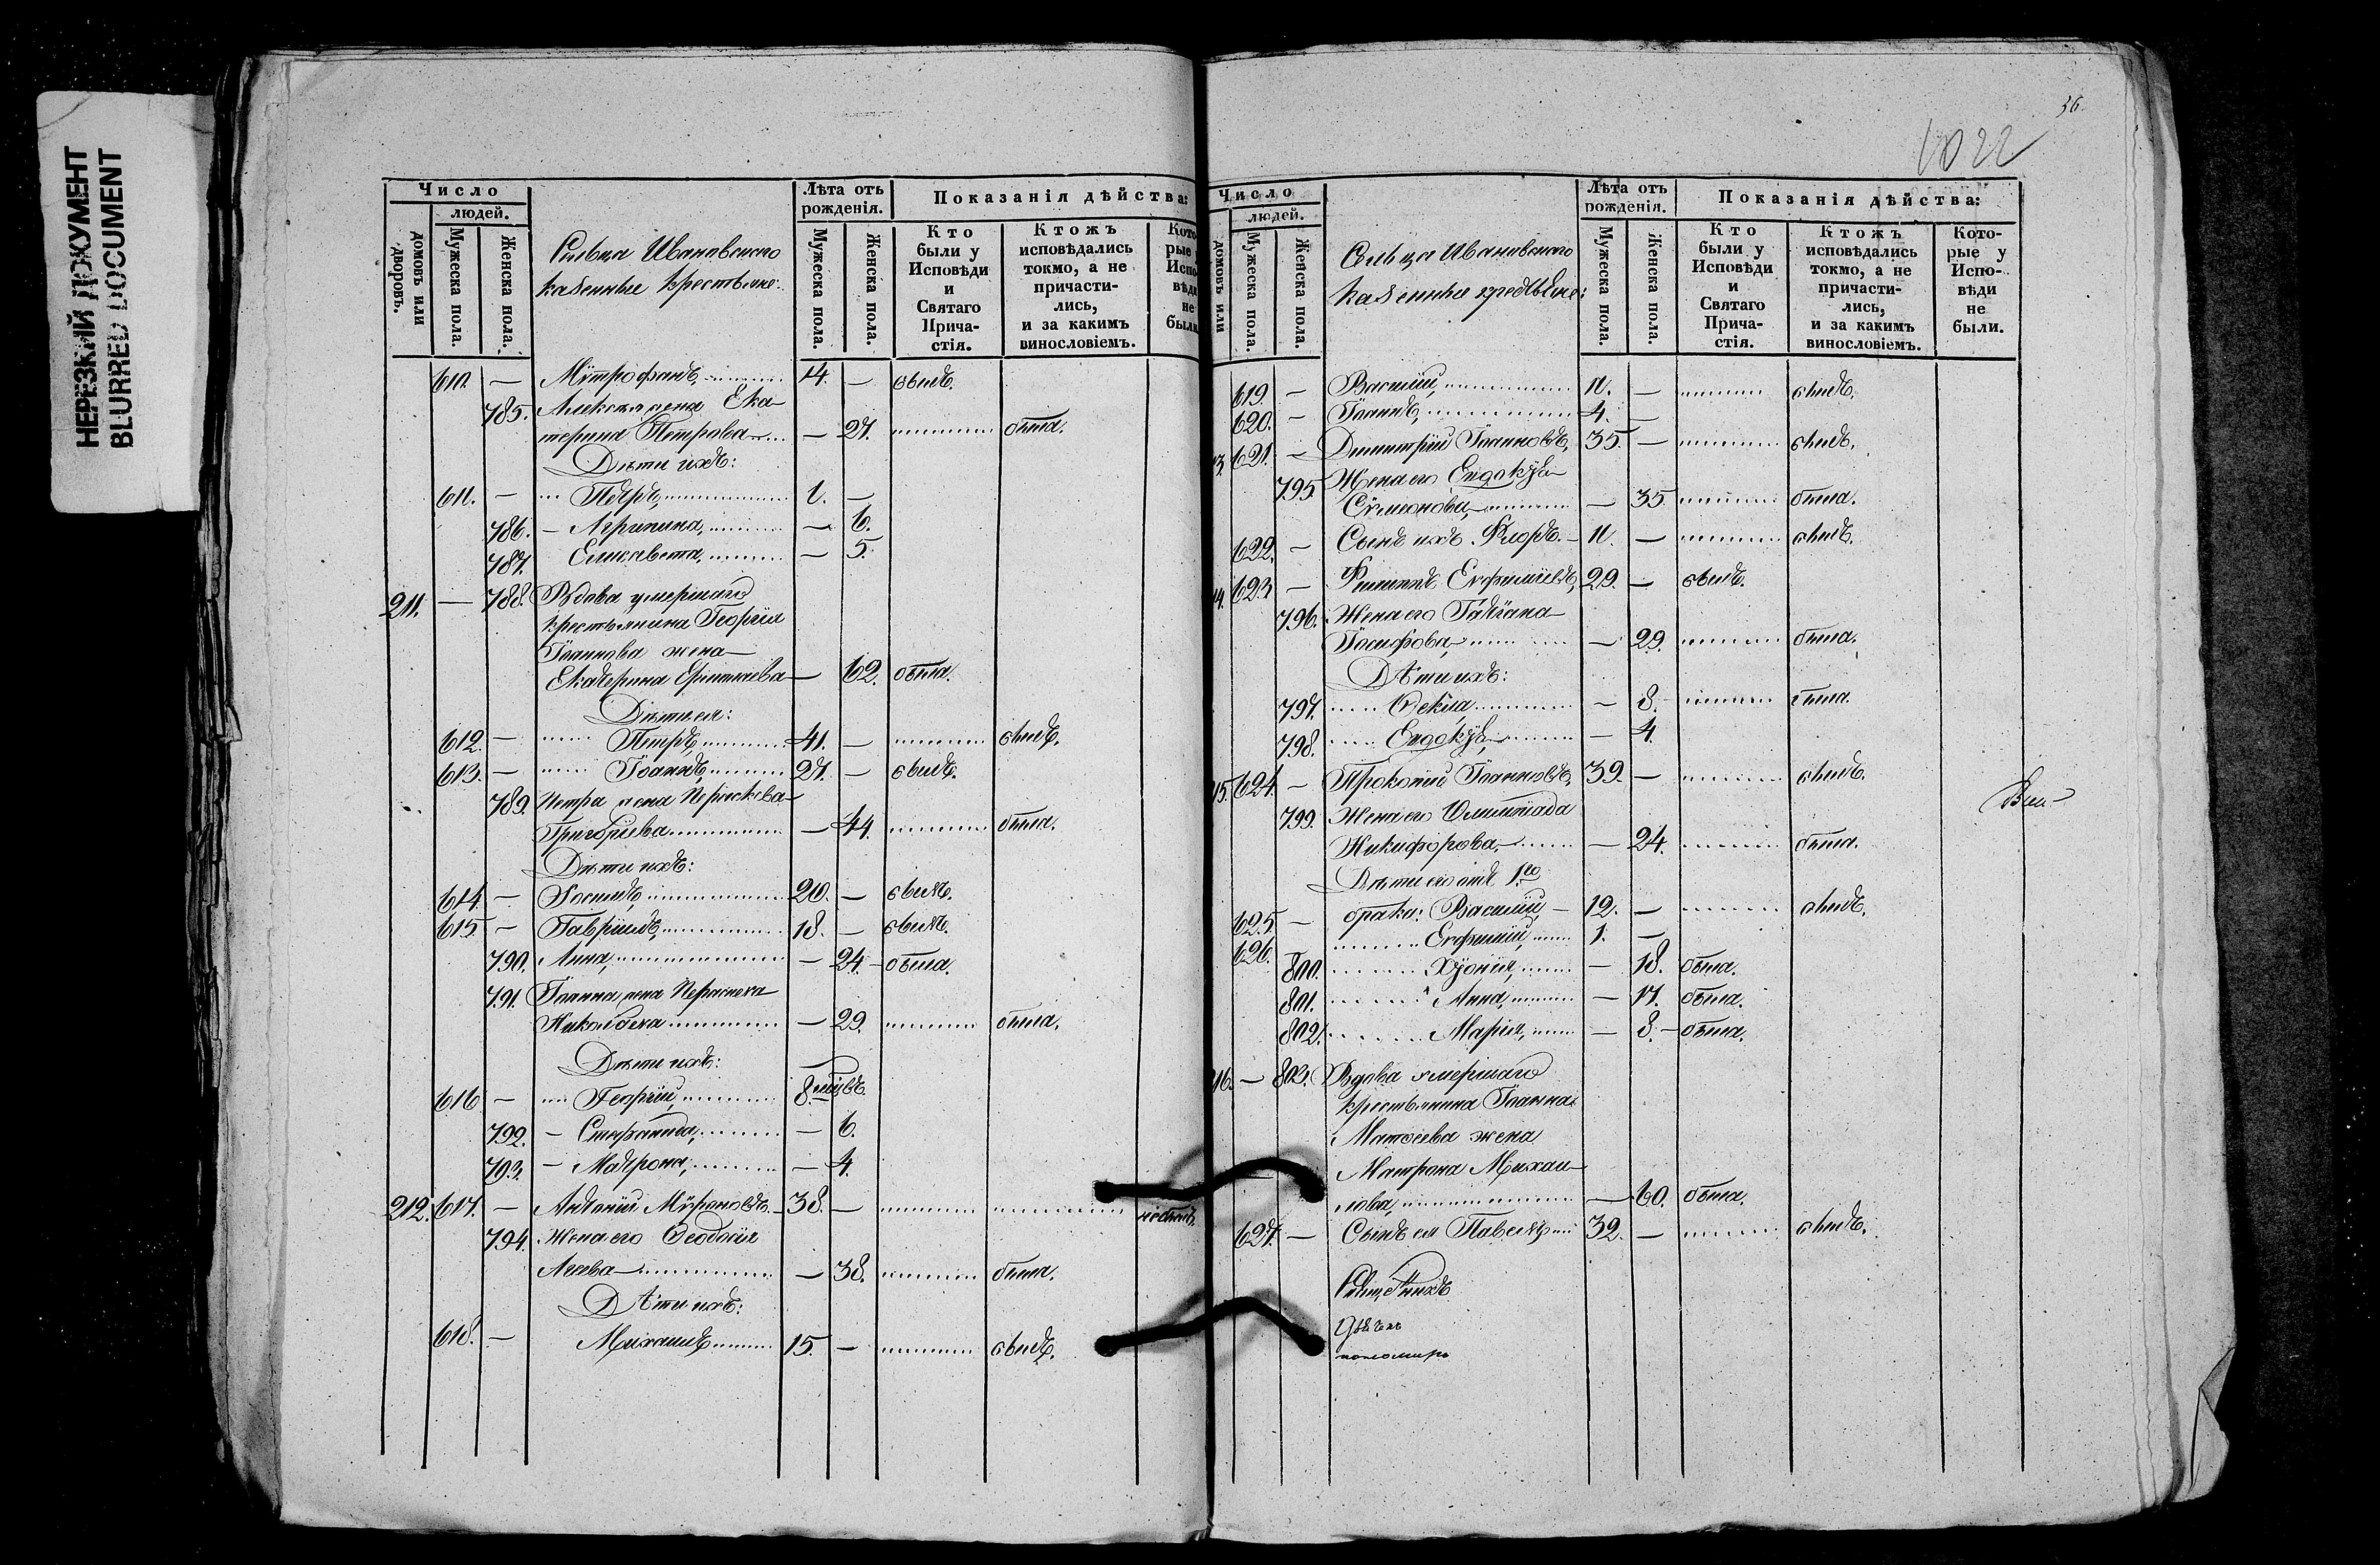 НЕРЕЗКИЙ ДОКУМЕНТ
BLURRED DOCUMENT
Число
людей.
домовъ или дворовъ.
Мужеска пола.
Женска пола.
Сельца Ивановскаго
казенные крестьяне:
Лѣта отъ рожденія.
Мужеска пола.
Женска пола.
Показанія дѣйства:
Кто были у Исповѣди и Святаго Прича-стія.
Ктожъ исповѣдались токмо, а не причасти-лись, и за какимъ винословіемъ.
610. — Митрофанъ, 14. — былъ.
785. Александра жена Ека-
терина Петрова — 27. была.
Дѣти ихъ:
611. — Петръ, 1. —
786. — Агрипина, — 6.
787. Елисавета, — 5.
211. — 788. Вдова умершаго
крестьянина Георгія
Іоаннова жена
Екатерина Ермолаева — 62. была.
Дѣти ея:
612. — Петръ, 41. — былъ.
613. — Іоаннъ, 27. — былъ.
789. Петра жена Параскева
Григорьева — 44. была.
Дѣти ихъ:
614. — Іосифъ, 20. — былъ.
615. — Гавріилъ, 18. — былъ.
790. Анна, — 24 — была.
791. Іоанна жена Параскева
Николаева — 29. была.
Дѣти ихъ:
616 — Георгій, 8.
792. — Стефанида, — 6.
793. — Матрона, — 4.
212. 617. — Антоній Мѵроновъ 38. — небылъ.
794. Жена его Ѳеодосія
— 38. была.
Дѣти ихъ:
618. — Михаилъ 15. — былъ.
36.
1022
Число
людей.
домовъ или
Мужеска пола.
Женска пола.
Сельца Ивановскаго
казенные крестьяне:
Лѣта отъ рожденія.
Мужеска пола.
Женска пола.
Показанія дѣйства:
Кто были у Исповѣди и Святаго Прича-стія.
Ктожъ исповѣдались токмо, а не причасти-лись, и за какимъ винословіемъ.
Кото-рые у Испо-вѣди не были.
619. — Василій, 11. — былъ.
620. — Іоаннъ, 4. —
13. 621. — Димитрій Іоанновъ, 35. — былъ.
795. Жена его Евдокія
Сѵмеонова, — 35 была.
622. — Сынъ ихъ Флоръ — 11. — былъ.
14. 623 — Филиппъ Евфиміевъ, 29. — былъ.
796. Жена его Татіана
Іосифова, — 29. была.
Дѣти ихъ:
797. Ѳекла, — 8. была.
798. Евдокія, — 4.
15. 624. — Прокопій Іоанновъ, 39. — былъ.
799. Жена его Олимпіада
Никифорова, — 24. была.
Дѣти его отъ 1го
625 — брака: Василій, — 12. — былъ.
626. Евфимій, 1. —
800. Хіонія, — 18. была.
801. Анна, — 17. была.
802. Марія, — 8. — была.
16. — 803. Вдова умершаго
крестьянина Іоанна
Матѳеева жена
Матрона Михаи-
лова, — 60. была.
627. — Сынъ ея Павелъ 32. — былъ.
пономарь